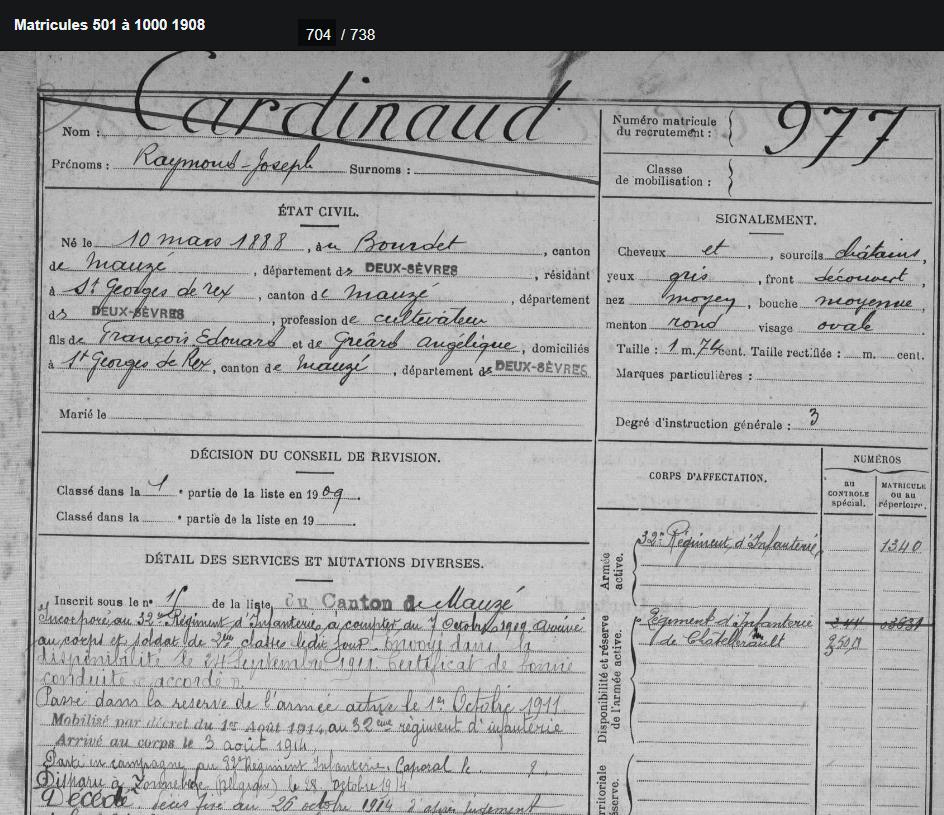 Matricules 501 à 1000 1908
704 / 738
Nom : Cardinaud
Prénoms : Raymond-Joseph Surnoms :
Numéro matricule du recrutement : 977
Classe de mobilisation :
ÉTAT CIVIL.
Né le 10 mars 1888, à u Bourdet, canton
de Mauzé, département ds DEUX-SÈVRES, résidant
à St Georges de rex, canton de Mauzé, département
ds DEUX-SÈVRES, profession de cultivateur
fils de François Edouard et de Gréard Angélique, domiciliés
à St Georges de Rex, canton de Mauzé, département ds DEUX-SÈVRES
Marié le
SIGNALEMENT.
Cheveux et, sourcils châtains,
yeux gris, front découvert
nez moyen, bouche moyenne
menton rond visage ovale
Taille : 1 m. 74 cent. Taille rectifiée : m. cent.
Marques particulières :
Degré d'instruction générale : 3
DÉCISION DU CONSEIL DE REVISION.
Classé dans la 1e partie de la liste en 1909.
Classé dans la e partie de la liste en 19
DÉTAIL DES SERVICES ET MUTATIONS DIVERSES.
Inscrit sous le n° de la liste du Canton de Mauzé
Incorporé au 32e Régiment d'Infanterie à compter du 7 Octobre 1909 Arrivé
au corps et soldat de 2me classe ledit jour. Envoyé dans la
disponibilité le 24 Septembre 1911 Certificat de bonne
conduite accordé
Passé dans la reserve de l'armée active le 1er Octobre 1911
Mobilisé par décret du 1er Août 1914 au 32eme règiment d'infanterie
Arrivé au corps le 3 août 1914.
Parti en campagne au 32e Régiment Infanterie. Caporal le ?
Disparu à Zonnebeke (Belgique) le 28 octobre 1914
Décédé décès fixé au 26 octobre 1914 d'après jugement
CORPS D'AFFECTATION.
NUMÉROS
au CONTROLE spécial.
MATRICULE ou au répertoire.
Armée active.
32e Régiment d'Infanterie, 1340
Disponibilité et réserve de l'armée active.
Régiment d'Infanterie
de Châtellerault
rritoriale
serve.